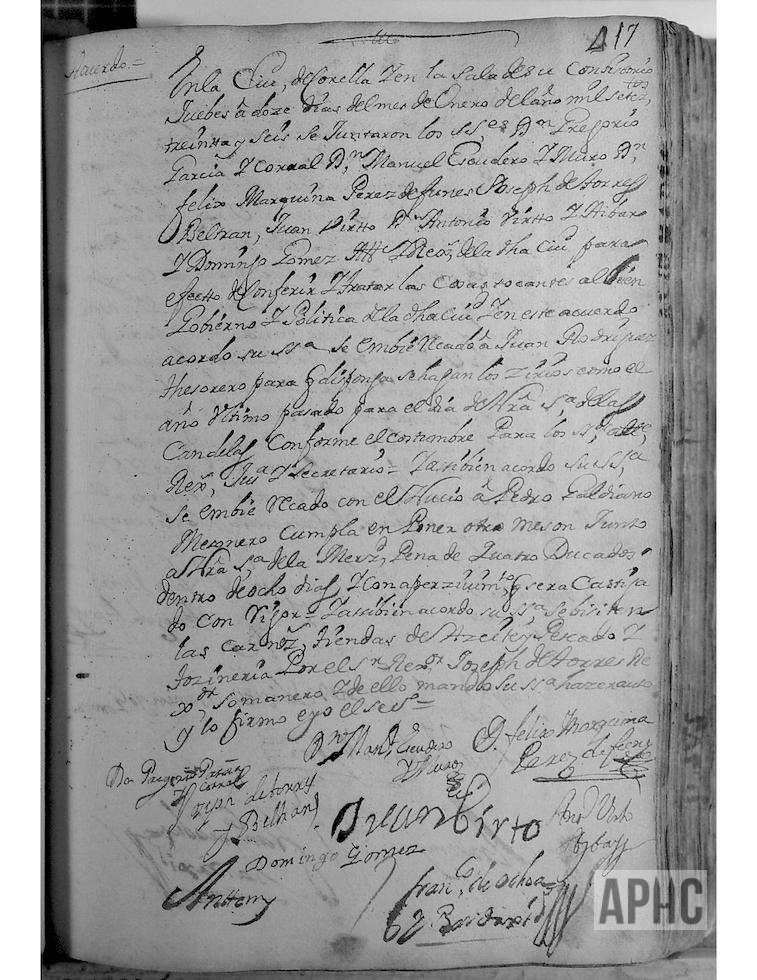 417
Acuerdo=
En la Ciu, de Corella Y en la sala de su Consistorio
Juebes â doze dias del mes de Enero del año mil setez,tos
treinta y seis se Juntaron los ss,es Dn Gregorio
Garcia Y Corral D,n Manuel Escudero Y Muro D,n
felix Marquina Perez de funes Joseph de torres
Beltran, Juan Virtto Dn Antonio Virtto Y Aibar
Y Domingo Gomez Altte Y Rexs de la dha Ciu para
efectto de Conferir Y tratar las Cosas tocantes al buen
Gobierno Y Politica de la dha Ciud Y en este acuerdo
acordo su ssa se embie Recado â Juan Rodriguez
thesorero para q disponga se hagan los Zirios como el
año Ultimo pasado para el dia de Nra Sa de las
Candelas Conforme el costumbre Para los ss, alte,
Rexs, Y Secretario= Tambien acordo su ss,a
se embie Recado con el Nuncio â Pedro Galdiano
Mesonero Cumpla en Poner otro meson Junto
a Nra Sa de la Merz, Pena de Quatro Ducados
dentro de ocho dias Y con aperzivimto q sera Castiga
do con Rigor= Tambien acordo su ssa, se bisiten
las carnes, tiendas de Azeite y Pescado Y
tozineria Por el sr Rexr Joseph de torres Re
xdr, semanero Y de ello mando su ssa hazer auto
y lo firmo e yo el scrs=
Dn Manl Escudero
Y Muro
D. felix Marquina
Perez de funes
Don Gregorio Garcia
Y Corral
Joseph de torres
Y Beltran
Juan Birto
Anto Virto
Aybar
Domingo Gomez
Ante my
Franco de Ochoa
APHC